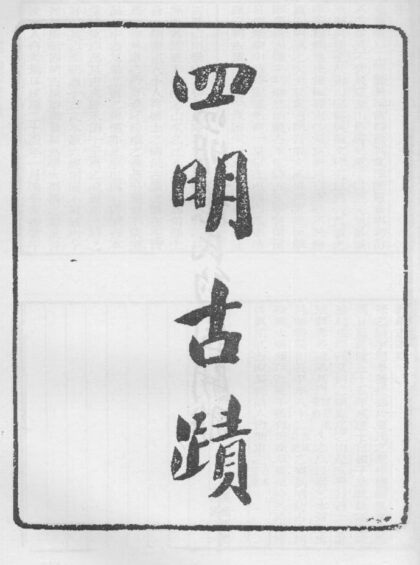 四明古蹟